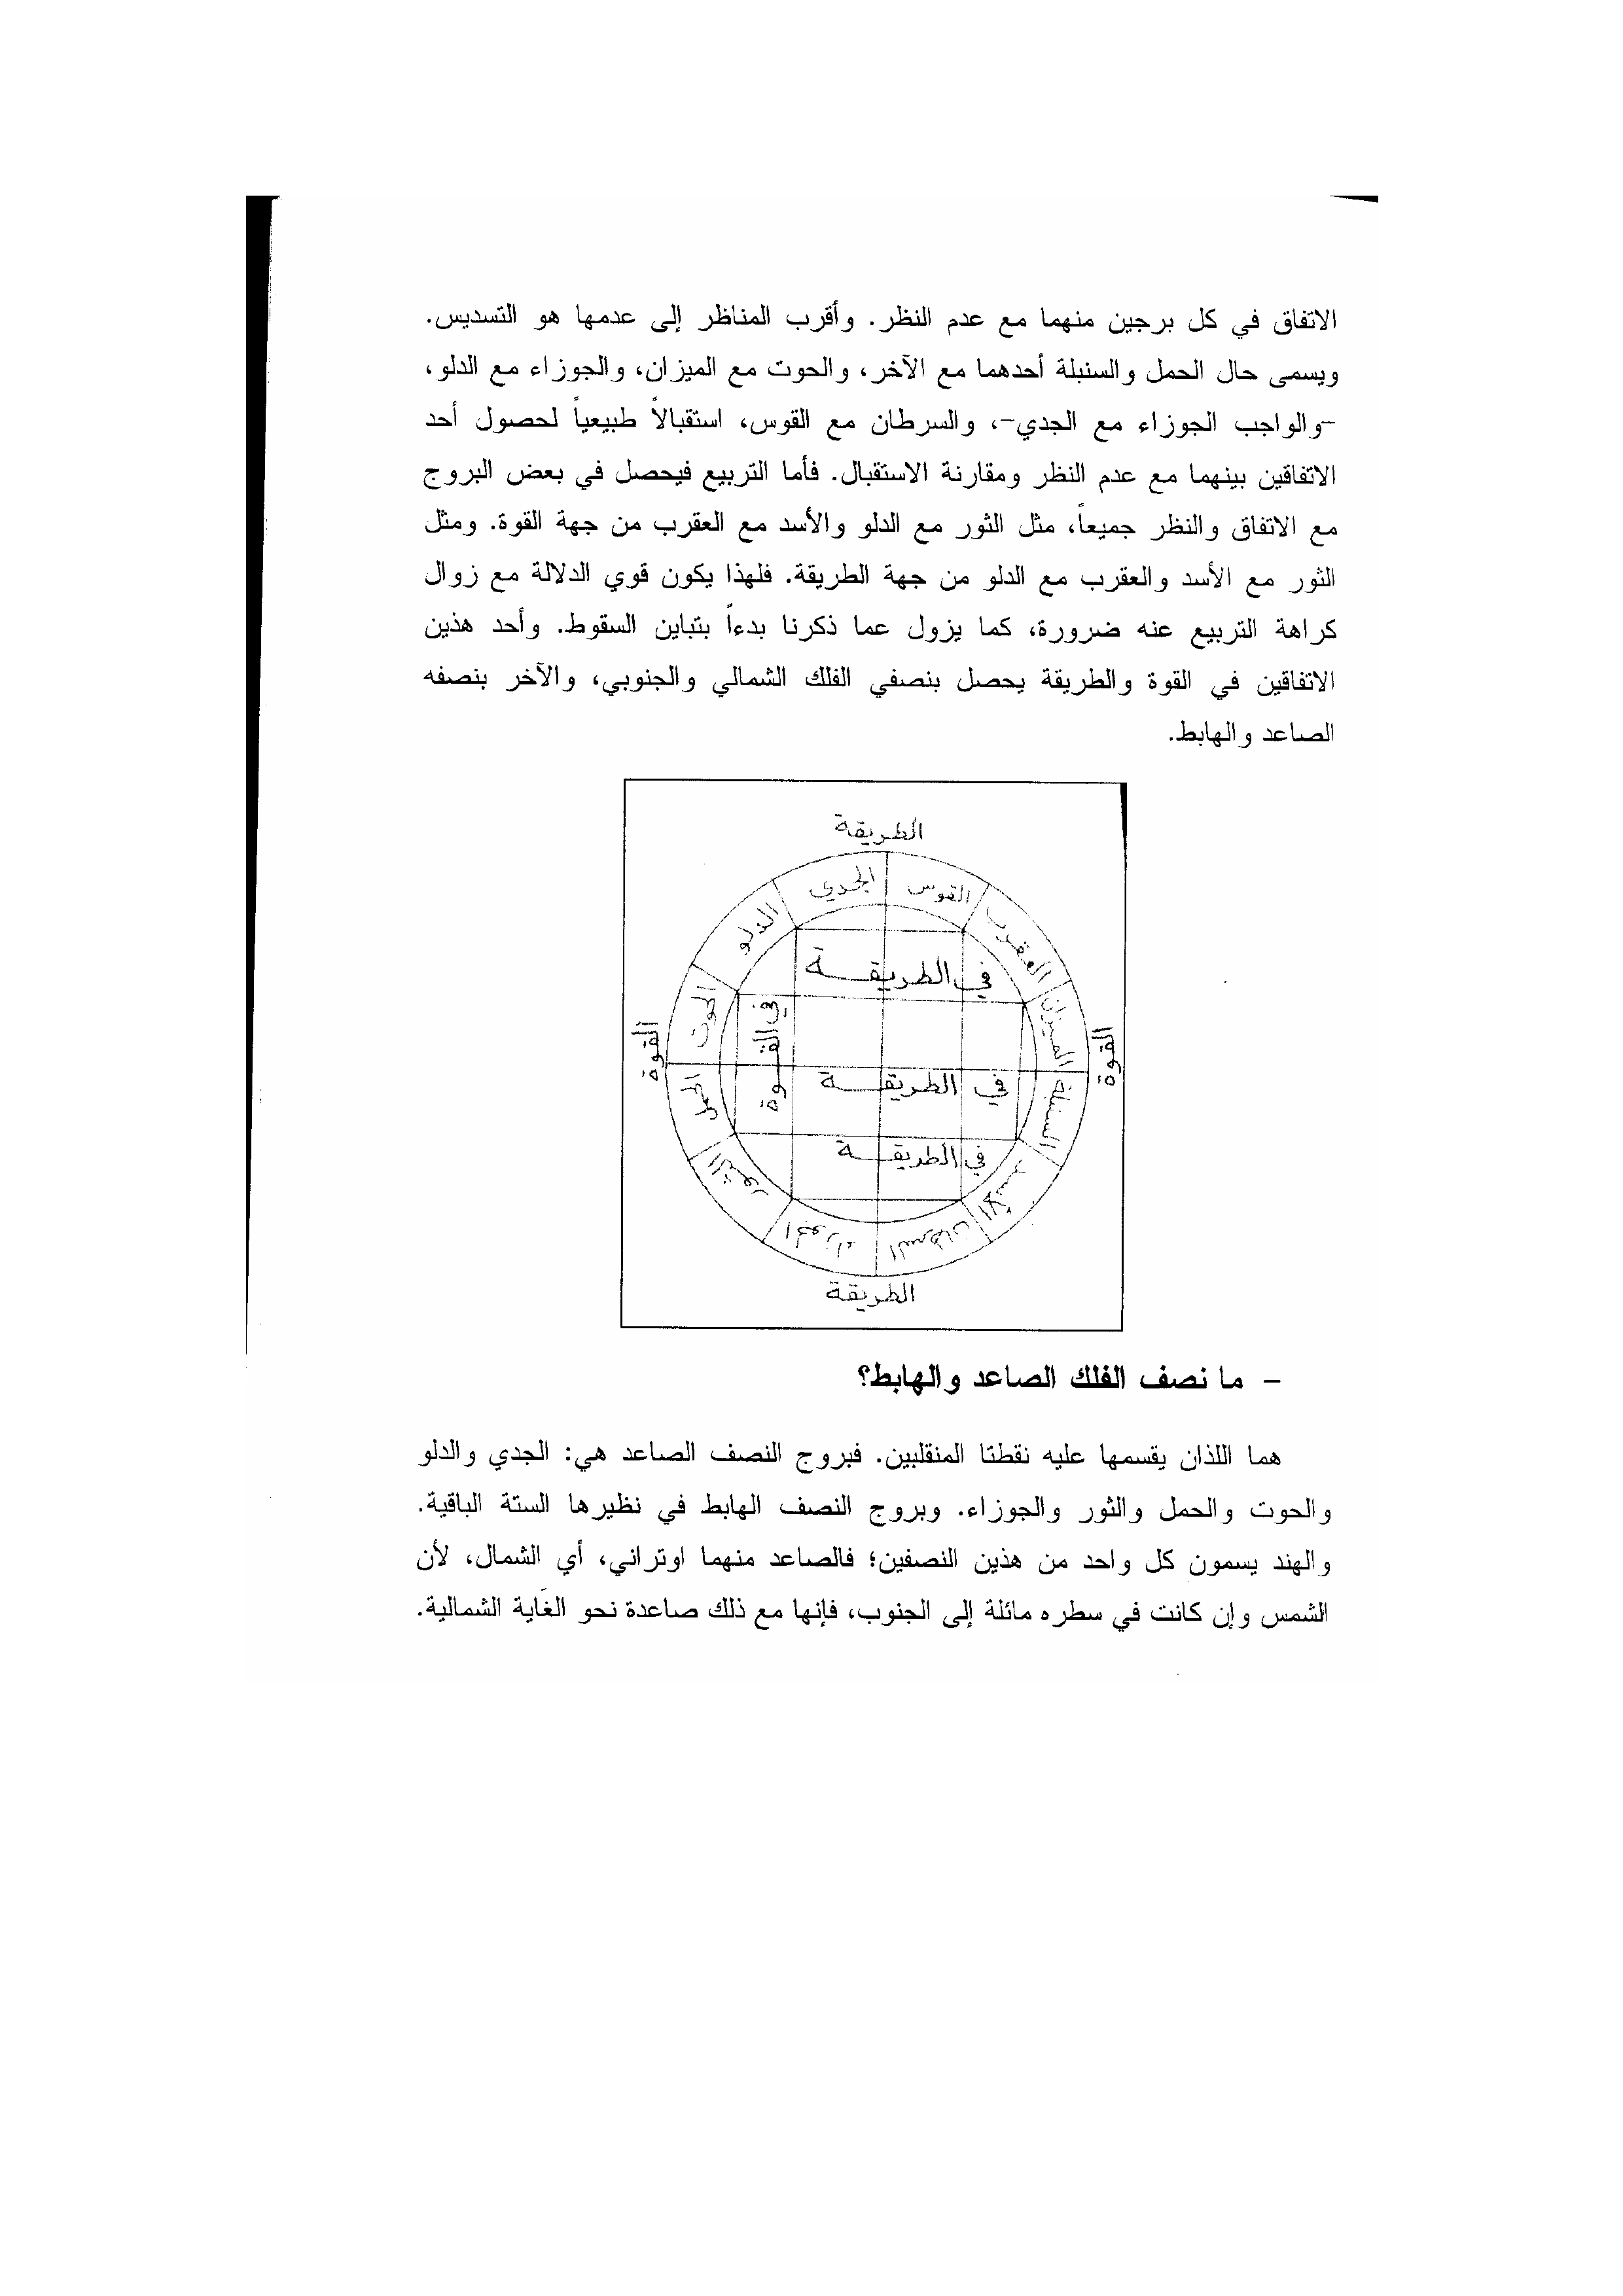 الاتفاق في كل برجين منهما مع عدم النظر. وأقرب المناظر إلى عدمها هو التسديس.
ويسمى حال الحمل والسنبلة أحدهما مع الآخر، والحوت مع الميزان، والجوزاء مع الدلو،
-والواجب الجوزاء مع الجدي-، والسرطان مع القوس، استقبالاً طبيعياً لحصول أحد
الاتفاقين بينهما مع عدم النظر ومقارنة الاستقبال. فأما التربيع فيحصل في بعض البروج
مع الاتفاق والنظر جميعاً، مثل الثور مع الدلو والأسد مع العقرب من جهة القوة. ومثل
الثور مع الأسد والعقرب مع الدلو من جهة الطريقة. فلهذا يكون قوي الدلالة مع زوال
كراهة التربيع عنه ضرورة، كما يزول عما ذكرنا بدءاً بتباين السقوط. وأحد هذين
الاتفاقين في القوة والطريقة يحصل بنصفي الفلك الشمالي والجنوبي، والآخر بنصفه
الصاعد والهابط.
الطريقة
القوس
الجدي
العقرب
الدلو
في الطريقة
الميزان
الحوت
في القوة
القوة
القوة
في الطريقة
السنبلة
الحمل
في الطريقة
الأسد
الثور
السرطان
الجوزاء
الطريقة
– ما نصف الفلك الصاعد والهابط؟
هما اللذان يقسمها عليه نقطتا المنقلبين. فبروج النصف الصاعد هي: الجدي والدلو
والحوت والحمل والثور والجوزاء. وبروج النصف الهابط في نظيرها الستة الباقية.
والهند يسمون كل واحد من هذين النصفين؛ فالصاعد منهما اوتراني، أي الشمال، لأن
الشمس وإن كانت في سطره مائلة إلى الجنوب، فإنها مع ذلك صاعدة نحو الغاية الشمالية.